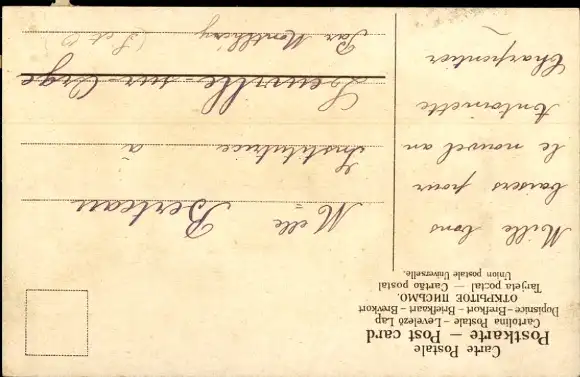 Carte Postale
Postkarte — Post card
Cartolina Postale – Levelező Lap
Dopisnice – Brefkort – Briefkaart – Brevkort
ОТКРЫТОЕ ПИСЬМО.
Tarjeta postal — Cartão postal
Union postale Universelle.
Mille bons
baisers pour
le nouvel an
Antoinette
Charpentier
Melle Berteau
Institutrice à
Leuville-sur-Orge
Par Montlhéry (S et O)